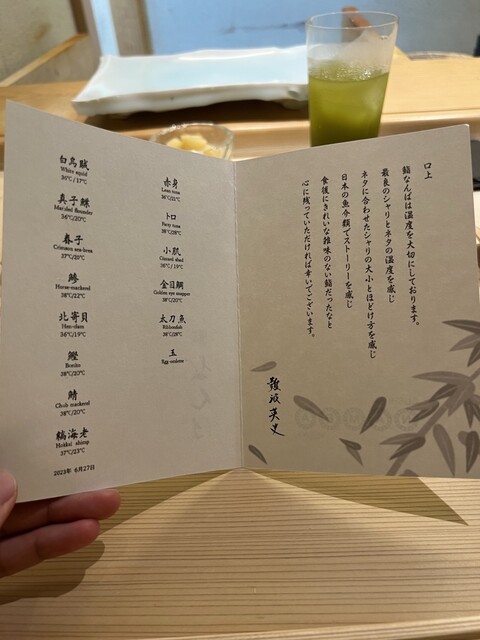 白烏賊
White squid
36℃/17℃
真子鰈
Marbled flounder
36℃/20℃
春子
Crimson sea-bream
37℃/20℃
鯵
Horse-mackerel
38℃/22℃
北寄貝
Hen-clam
36℃/19℃
鰹
Bonito
38℃/20℃
鯖
Chub mackerel
38℃/20℃
縞海老
Hokkai shrimp
37℃/23℃
2023年 8月27日
赤身
Lean tuna
36℃/21℃
トロ
Fatty tuna
小肌
Gizzard shad
36℃/19℃
金目鯛
Golden eye snapper
38℃/20℃
太刀魚
Ribbonfish
玉
Egg omelette
口上
鮨なんばは温度を大切にしております。
最良のシャリとネタの温度を感じ
ネタに合わせたシャリの大小とほどけ方を感じ
日本の魚介類でストーリーを感じ
食後にきれいな雑味のない鮨だったなと
心に残っていただければ幸いでございます。
難波英史